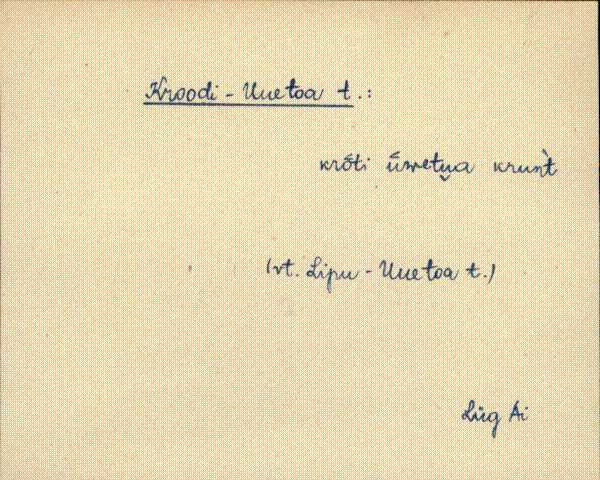 Kroodi - Uuetoa t.:
krōti ūwetu̬a krunt̀
(vt. Lipu - Uuetoa t.)
Lüg Ai